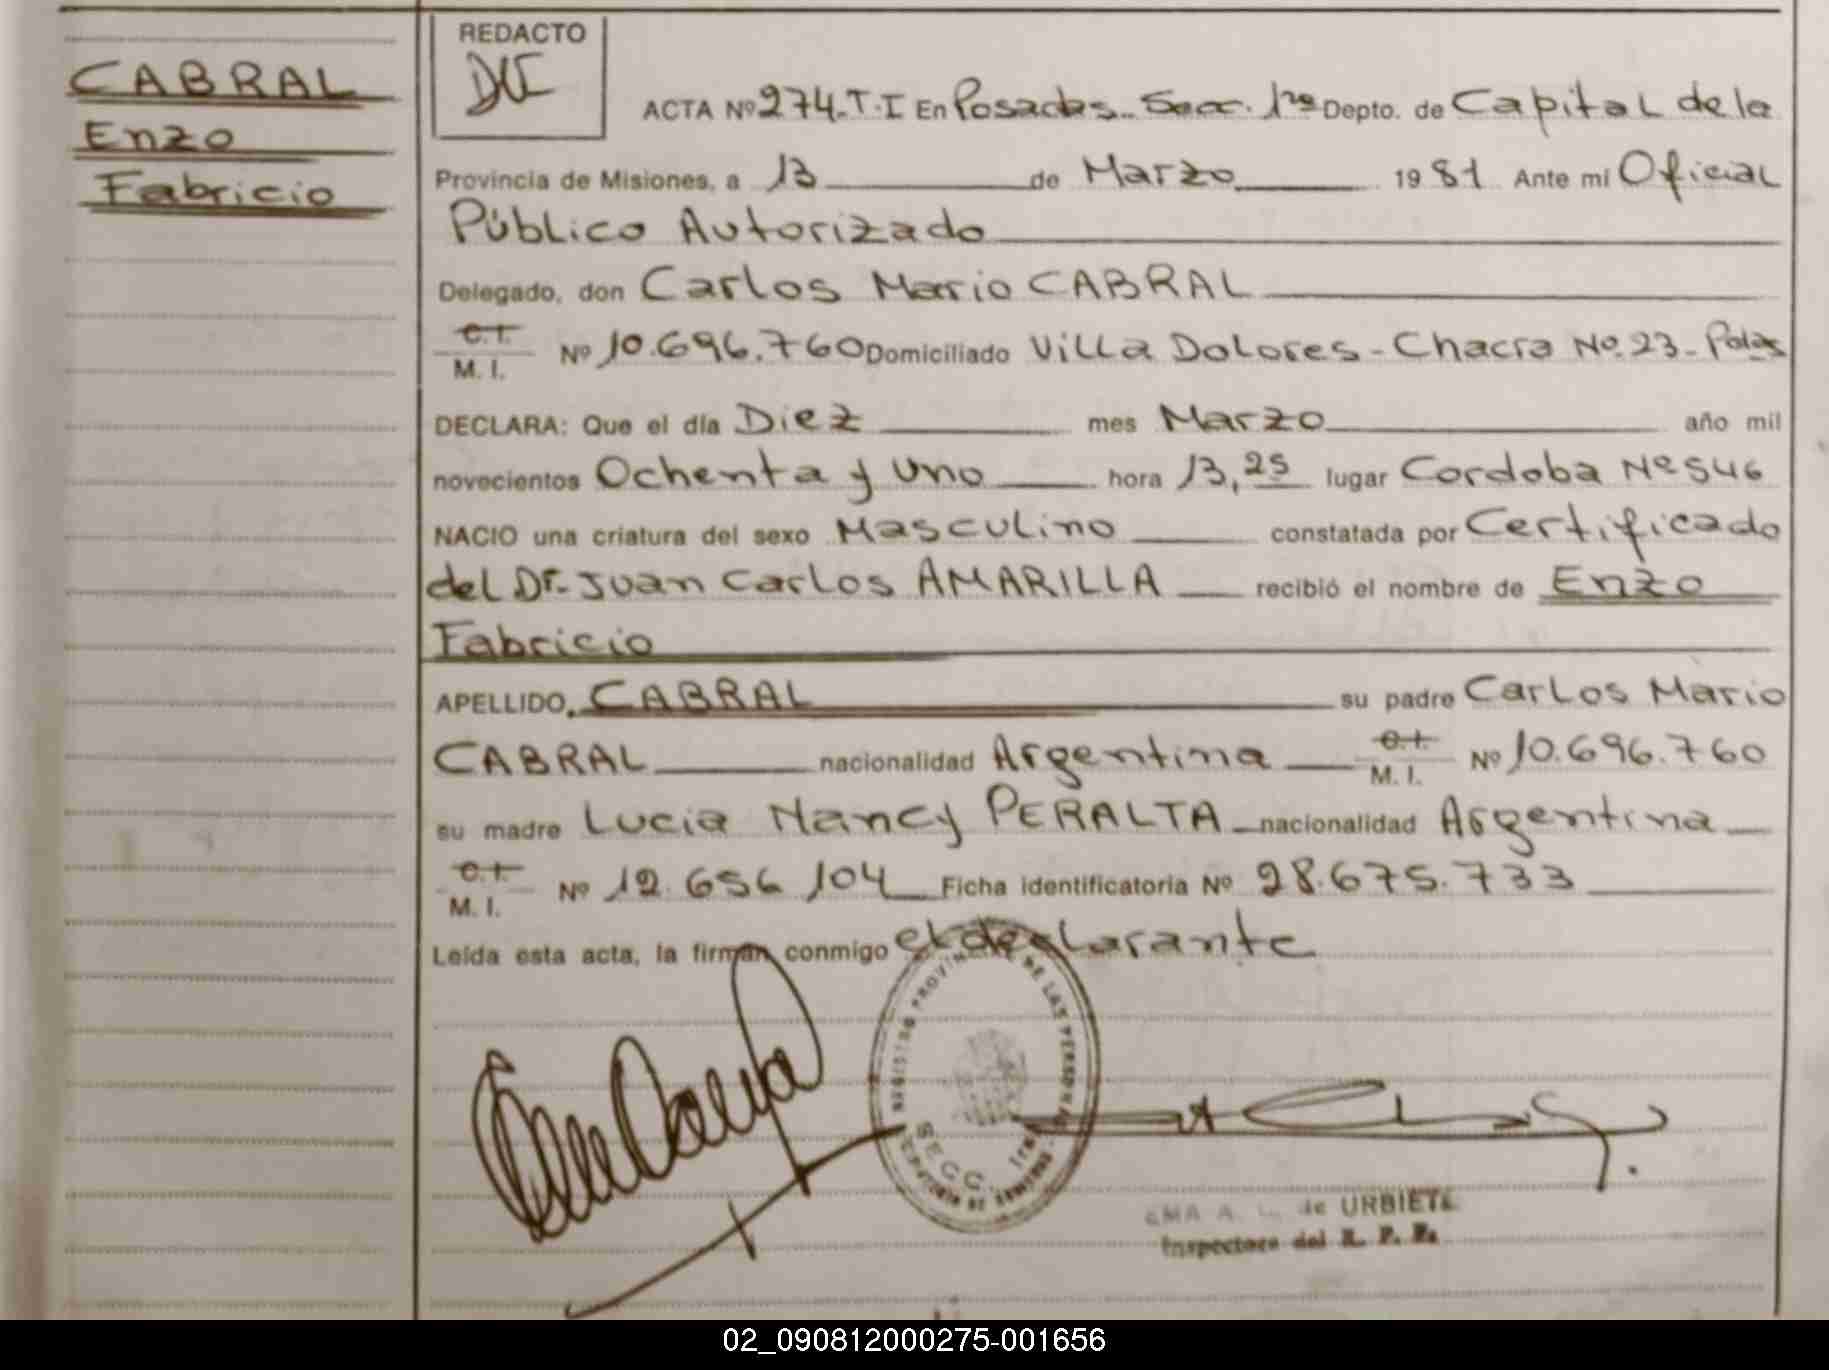 CABRAL
Enzo
Fabricio
REDACTO
ACTA Nº 274. T. I En Posadas - Secc. 1ra Depto. de Capital de la
Provincia de Misiones, a 13 de Marzo 1981 Ante mi Oficial
Público Autorizado
Delegado, don Carlos Mario CABRAL
C.I.
M. I. Nº 10.696.760 Domiciliado Villa Dolores - Chacra Nº 23 - Pdas
DECLARA: Que el día Diez mes Marzo año mil
novecientos Ochenta y Uno hora 13,25 lugar Cordoba Nº 546
NACIO una criatura del sexo Masculino constatada por Certificado
del Dr. Juan Carlos AMARILLA recibió el nombre de Enzo
Fabricio
APELLIDO, CABRAL su padre Carlos Mario
CABRAL nacionalidad Argentina C.I. M. I. Nº 10.696.760
su madre Lucia Nancy PERALTA nacionalidad Argentina
C.I.
M. I. Nº 12.656.104 Ficha identificatoria Nº 28.675.733
Leída esta acta, la firman conmigo el declarante
REGISTRO PROVINCIAL DE LAS PERSONAS
SECC. 1ra
A. L. de URBIETA
Inspectora del R. P. P.
02_090812000275-001656